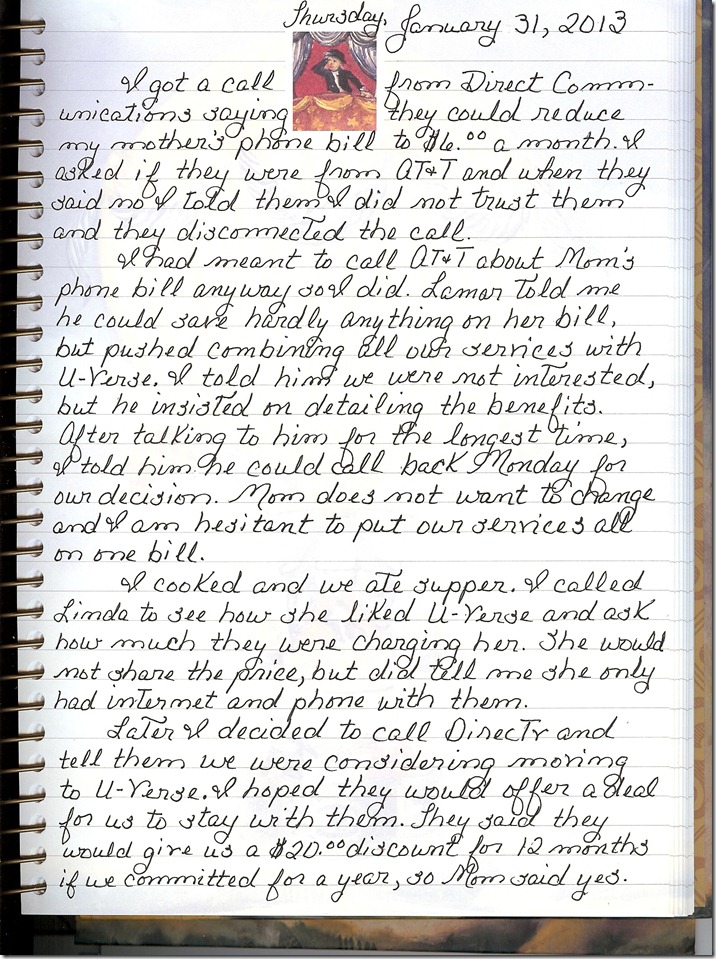 Thursday, January 31, 2013
I got a call from Direct Comm-
unications saying they could reduce
my mother's phone bill to $16.00 a month. I
asked if they were from AT&T and when they
said no I told them I did not trust them
and they disconnected the call.
I had meant to call AT&T about Mom's
phone bill anyway so I did. Lamar told me
he could save hardly anything on her bill,
but pushed combining all our services with
U-Verse. I told him we were not interested,
but he insisted on detailing the benefits.
After talking to him for the longest time,
I told him he could call back Monday for
our decision. Mom does not want to change
and I am hesitant to put our services all
on one bill.
I cooked and we ate supper. I called
Linda to see how she liked U-Verse and ask
how much they were charging her. She would
not share the price, but did tell me she only
had internet and phone with them.
Later I decided to call DirecTv and
tell them we were considering moving
to U-Verse. I hoped they would offer a deal
for us to stay with them. They said they
would give us a $20.00 discount for 12 months
if we committed for a year, so Mom said yes.